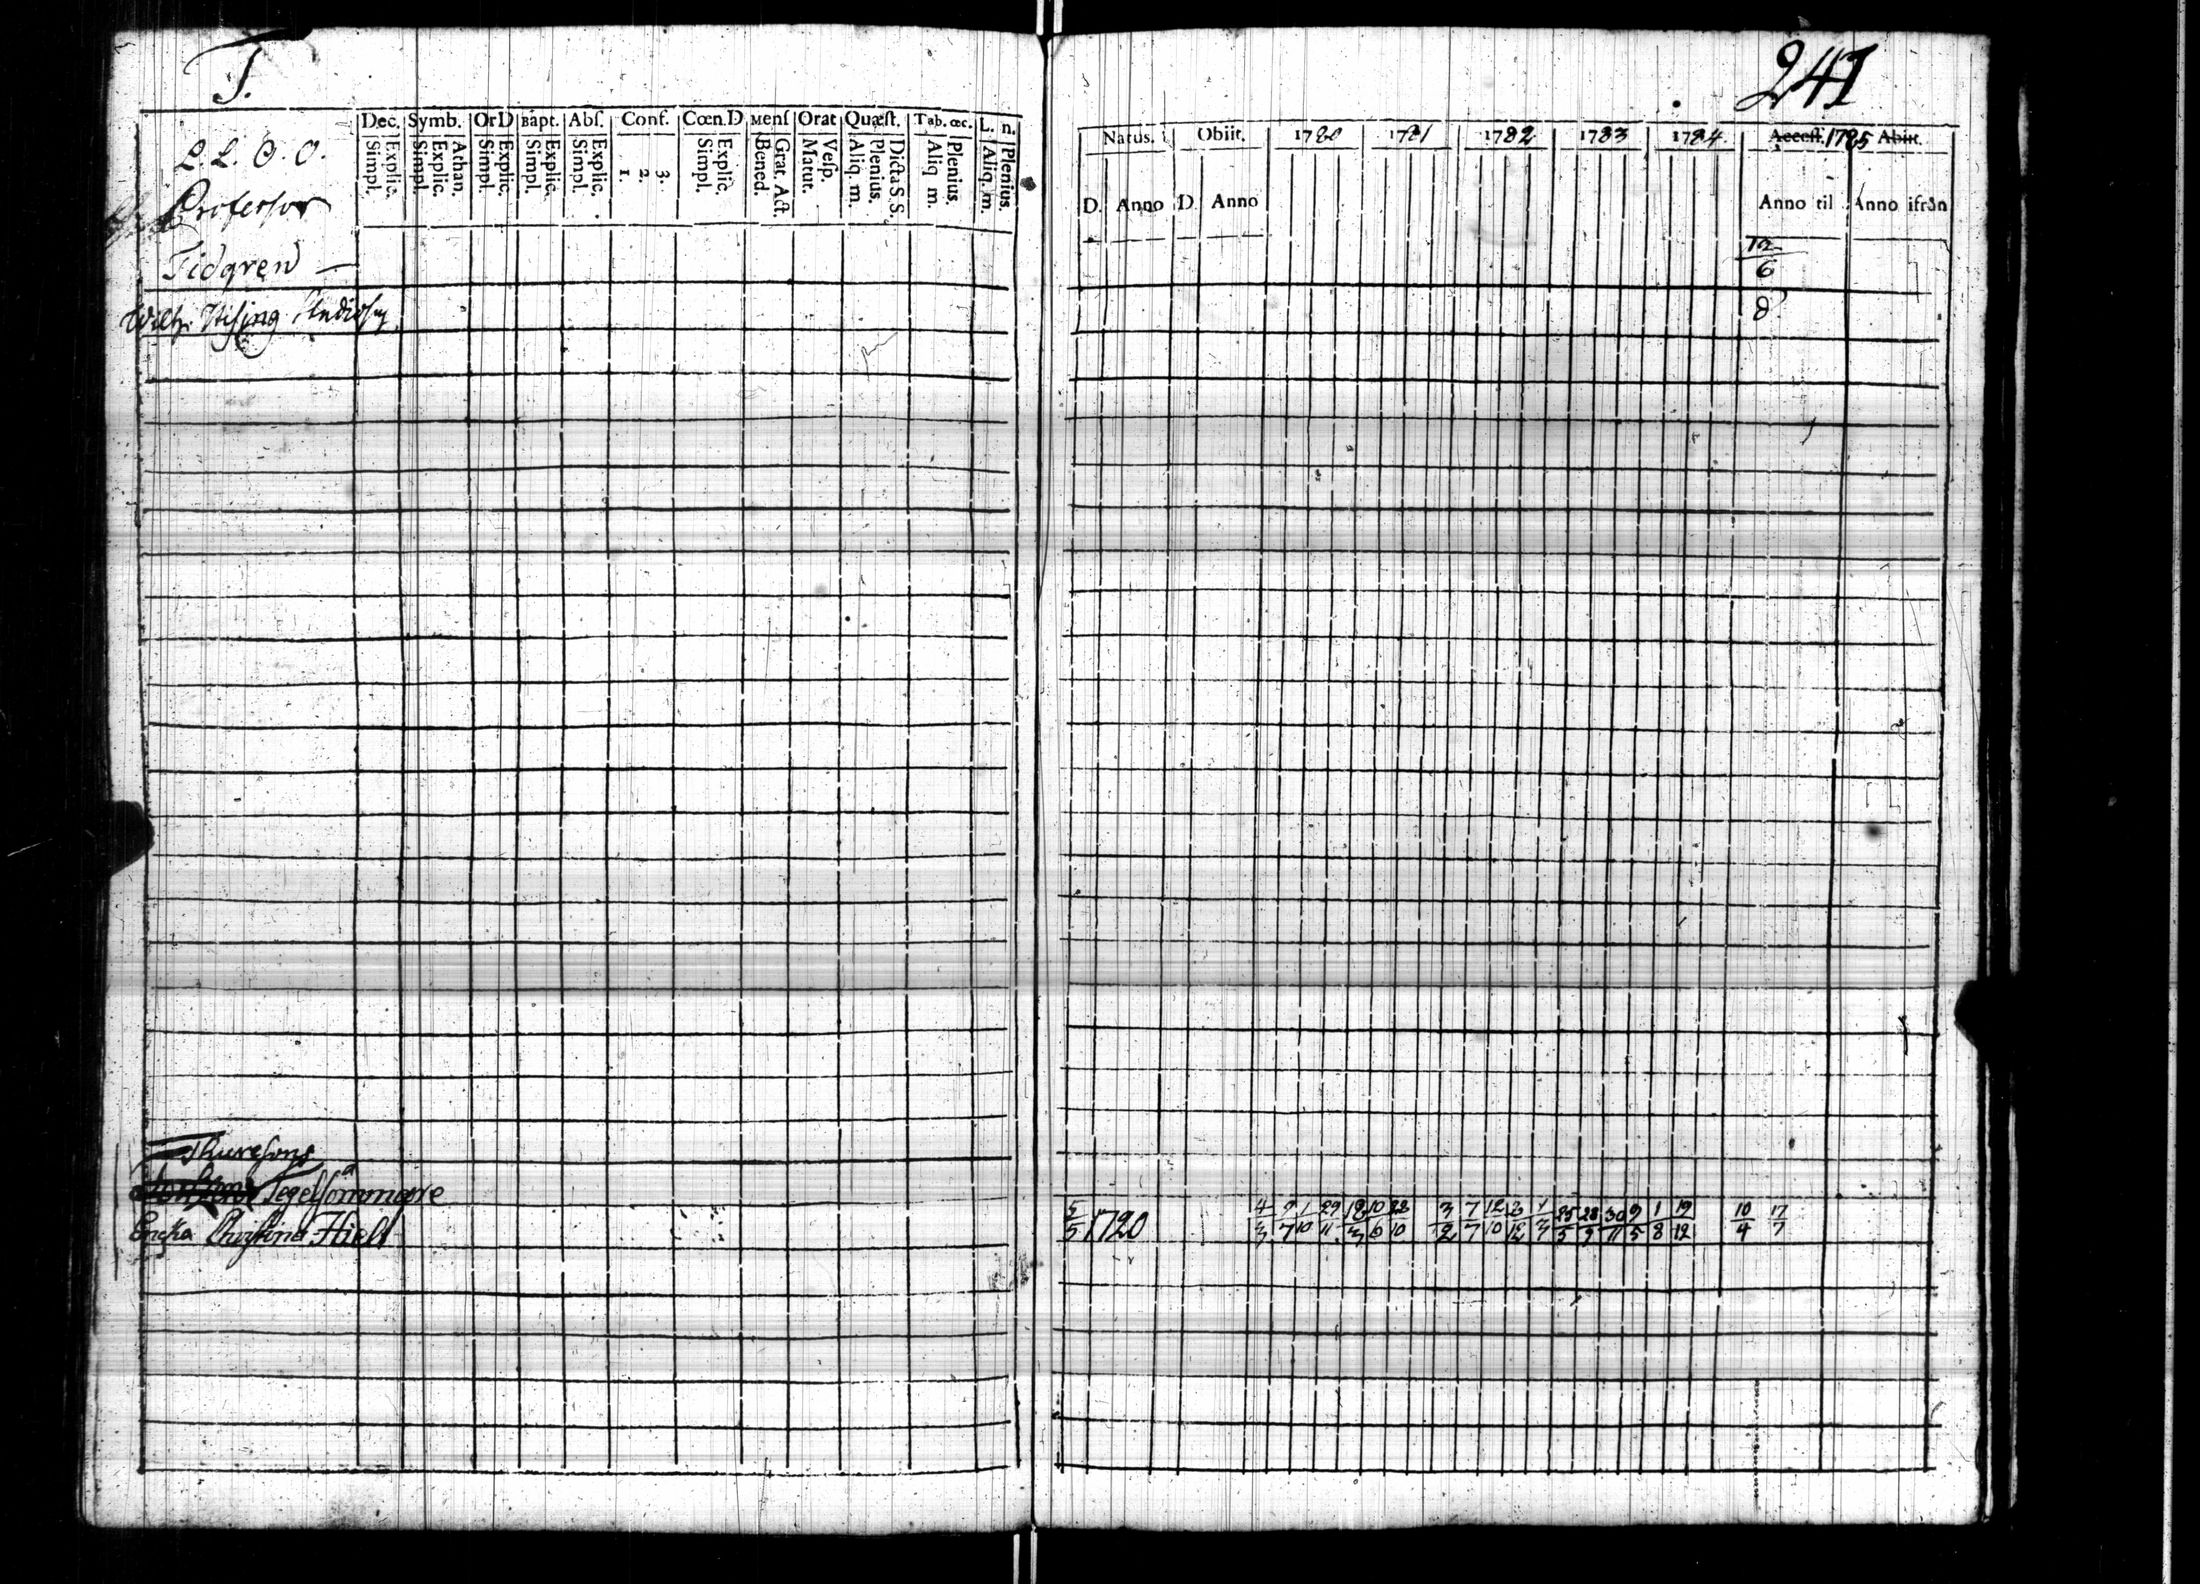 T.
241
Dec. Symb. Or D Bapt. Abſ. Conf. Cœn.D Menſ Orat Quæſt. Tab. œc. L. n.
Simpl. Explic. Simpl. Explic. Athan. Simpl. Explic. Simpl. Explic. Simpl. Explic. 1. 2. 3. Simpl. Explic. Bened. Grat. Act. Matut. Veſp. Aliq. m. Plenius. Dicta S. S. Aliq. m. Plenius. Aliq. m. Plenius.
L. L. O. O.
Professor
Tidgren —
Wilh. Hising Studios
Natus. Obiit. 1780 1781 1782 1783 1784 Acceſſ. 1785 Abiit.
D. Anno D. Anno Anno til Anno ifrån
12/6
8
Thuresons
Tegelsommare
Encka Christina Hielt
5/5 1720 4/3 9/7 1/10 29/11 18/3 10/6 28/10 3/2 7/7 12/10 3/12 1/3 25/5 28/9 30/11 9/5 1/8 19/12 10/4 17/7